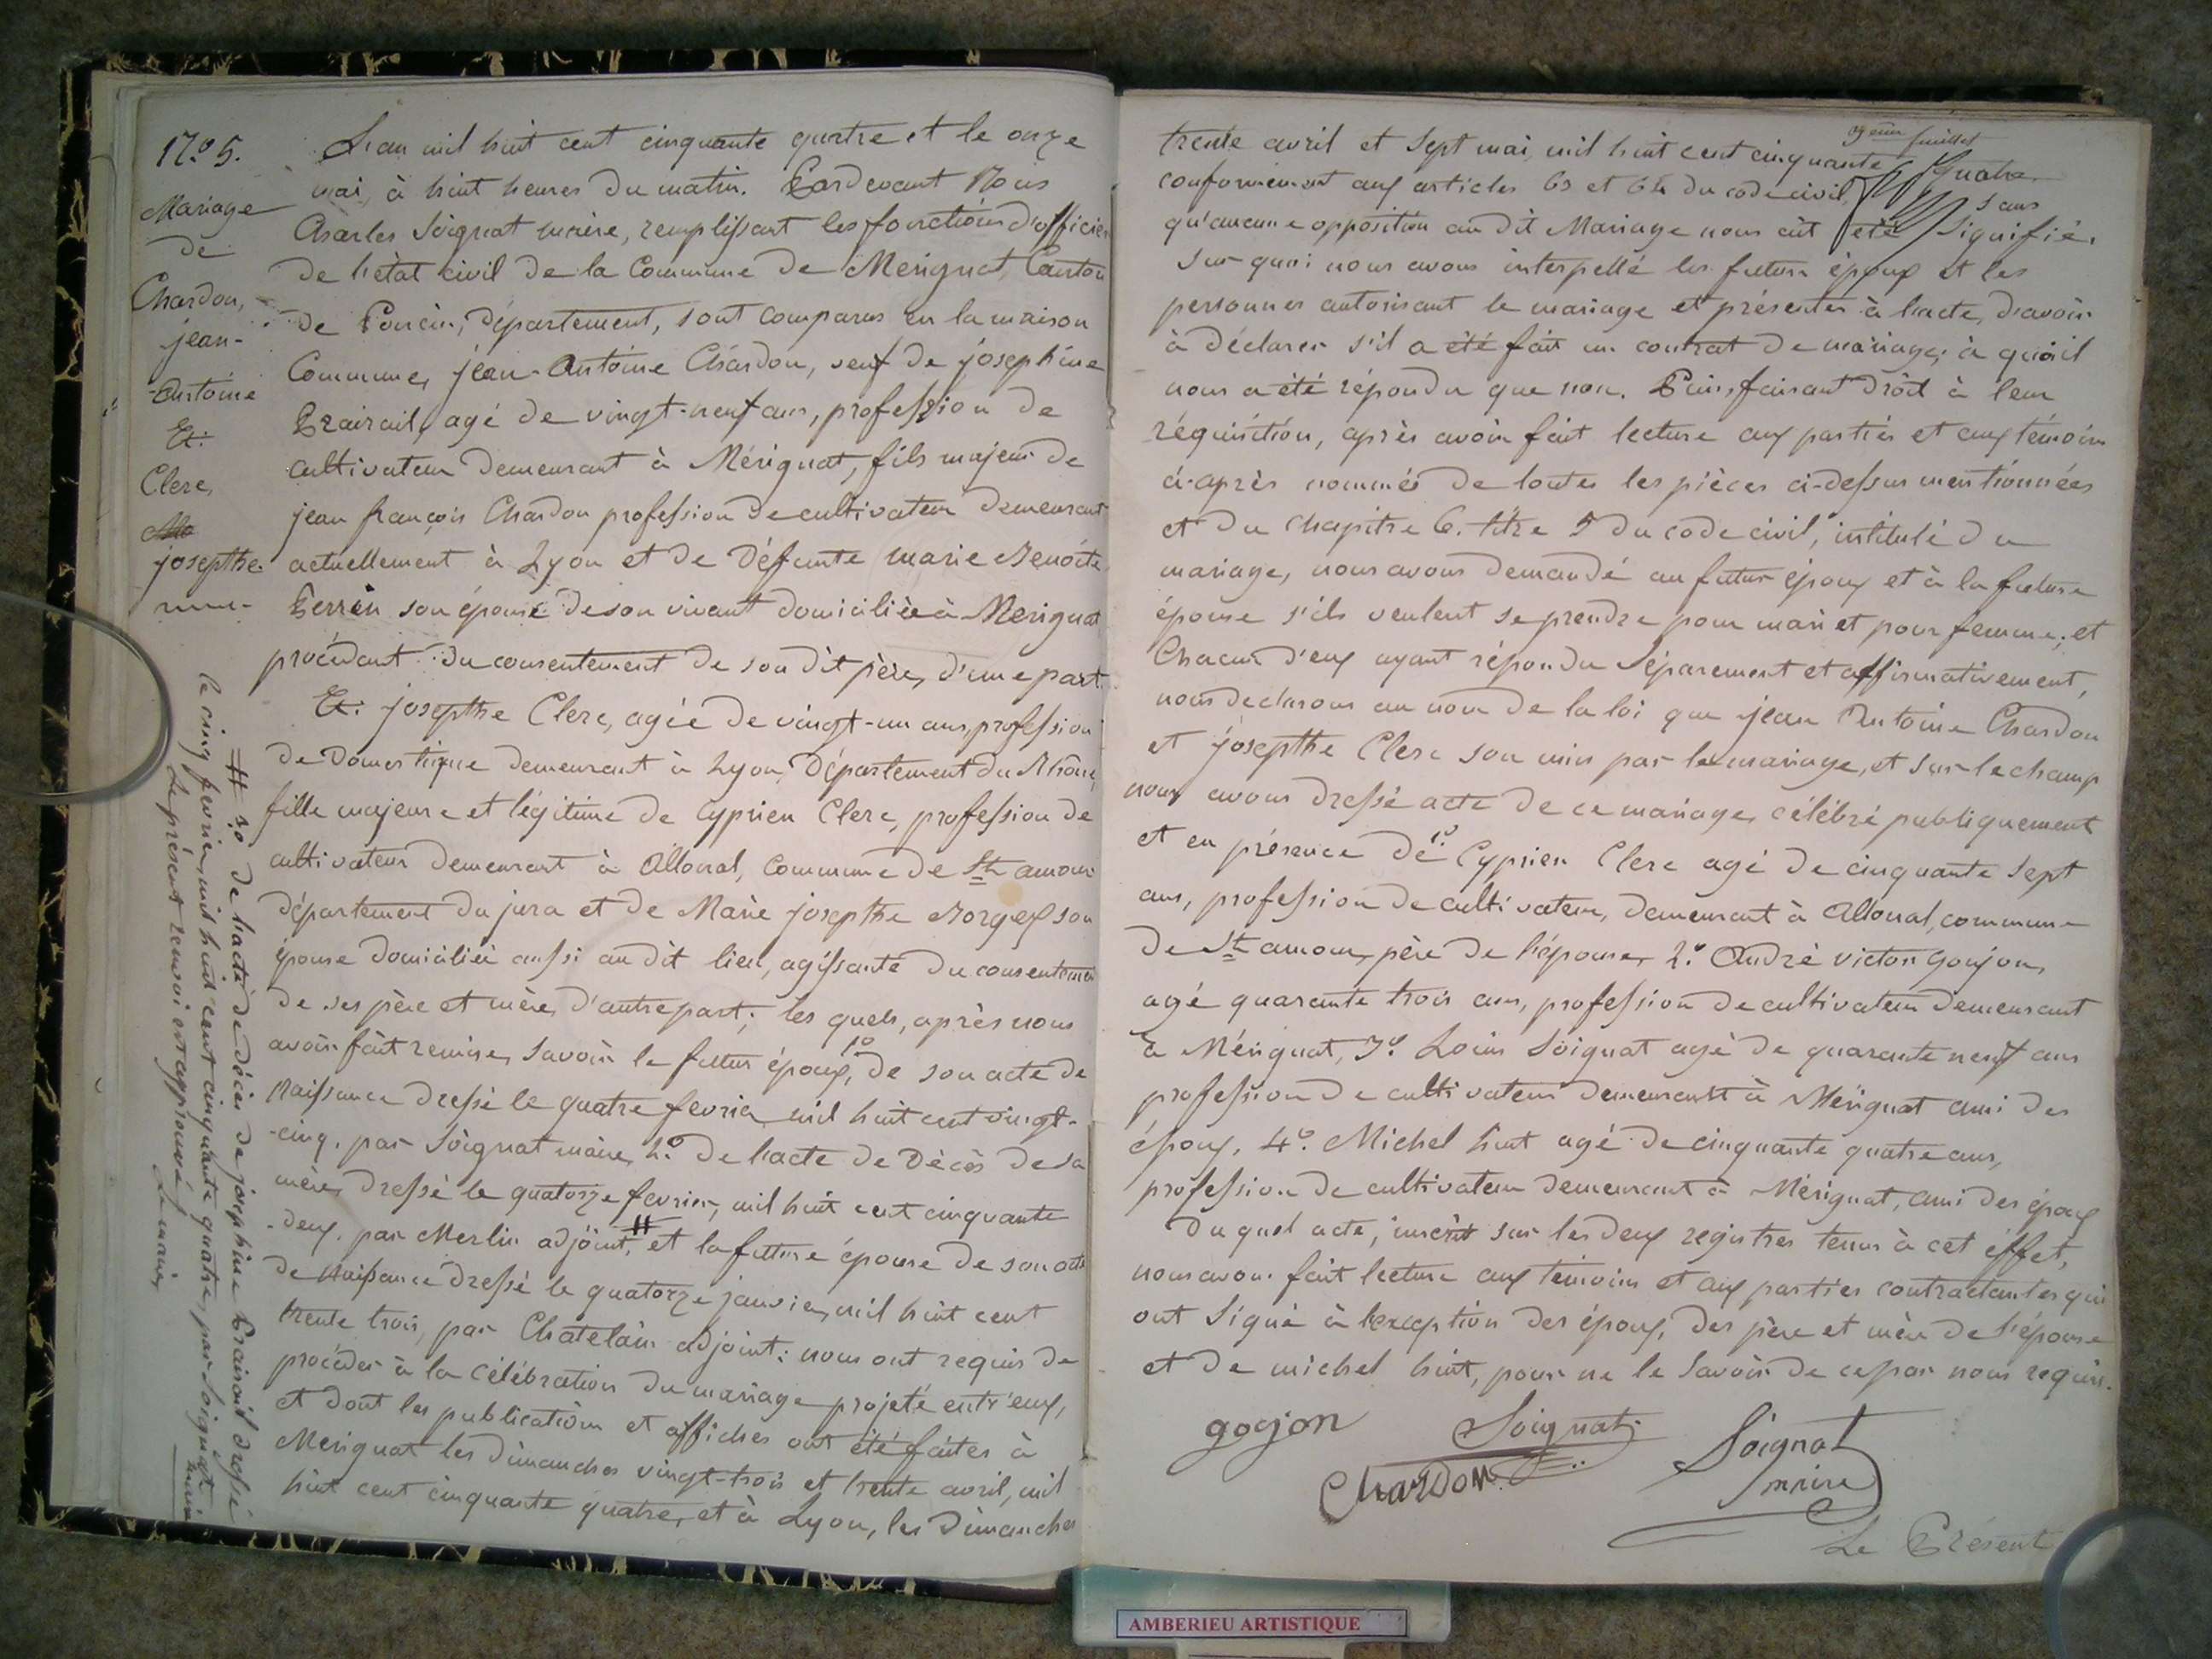 N.º 5.
Mariage
de
Chardon,
jean-
-Antoine
Et:
Clerc,
josepthe
L'an mil huit cent cinquante quatre et le onze
mai, à huit heures du matin. Pardevant Nous
Charles Soignat maire, remplissant les fonctions d'officier
de l'état civil de la Commune de Merignat, Canton
de Poncin, département, sont comparus en la maison
Commune, jean-Antoine Chardon, veuf de josephine
agé de vingt-neuf ans, profession de
cultivateur demeurant à Mérignat, fils majeur de
jean françois Chardon profession de cultivateur demeurant
actuellement à Lyon et de défunte marie Benoite
Perrin son épouse de son vivant domiciliée à Merignat
procédant du consentement de son dit père, d'une part.
Et: josepthe Clerc, agée de vingt-un ans, profession
de domestique demeurant à Lyon, Département du Rhône,
fille majeure et légitime de Cyprien Clerc, profession de
cultivateur demeurant à Allonal, Commune de St amour
département du jura et de Marie josepthe son
épouse domiciliée aussi au dit lieu, agissante du consentement
de ses père et mère, d'autre part; les quels, après nous
avoir fait remise, savoir le futur époux, 1º de son acte de
Naissance dressé le quatre fevrier mil huit cent vingt-
-cinq, par Soignat maire, 2.º de l'acte de Décès de sa
mère, dressé le quatorze fevrier, mil huit cent cinquante
-deux, par Merlin adjoint, # et la future épouse de son acte
de Naissance dressé le quatorze janvier, mil huit cent
trente trois, par Chatelain adjoint: nous ont requis de
procéder à la célébration du mariage projeté entr'eux,
et dont les publications et affiches ont été faites à
Merignat les dimanches vingt-trois et trente avril, mil
huit cent cinquante quatre, et à Lyon, les dimanches
# 3º de l'acte de décès de josephine dressé
le cinq fevrier, mil huit cent cinquante quatre, par Soignat
maire
Le présent renvoi est approuvé
Le maire,
feuillet
trente avril et sept mai, mil huit cent cinquante quatre
conformément aux articles 63 et 64 du code civil, sans
qu'aucune opposition au dit Mariage nous eût été signifié.
Sur quoi nous avons interpellé les futurs époux et les
personnes autorisant le mariage et présentes à l'acte, d'avoir
à déclarer s'il a été fait un contrat de mariage; à quoi il
nous a été répondu que non. Puis, faisant droit à leur
réquisition, après avoir fait lecture aux parties et aux témoins
ci-après nommés de toutes les pièces ci-dessus mentionnées
et du chapitre 6. titre 5 du code civil, intitulé du
mariage, nous avons demandé au futur époux et à la future
épouse s'ils veulent se prendre pour mari et pour femme; et
Chacun d'eux ayant répondu séparement et affirmativement,
nous declarons au nom de la loi que jean Antoine Chardon
et josepthe Clerc son unis par le mariage, et sur-le-champ
nous avons dressé acte de ce mariage, célébré publiquement
et en présence de 1º. Cyprien Clerc agé de cinquante sept
ans, profession de cultivateur, demeurant à Allonal, commune
de St amour, père de l'épouse, 2.º André victor goujon,
agé quarante trois ans, profession de cultivateur demeurant
à Mérignat, 3º. Louis Soignat agé de quarante neuf ans
profession de cultivateur demeurant à Mérignat ami des
époux, 4º. Michel huit agé de cinquante quatre ans,
profession de cultivateur demeurant à Mérignat, ami des époux
Du quel acte, inscrit sur les deux registres tenus à cet effet,
nous avons fait lecture aux témoins et aux parties contractantes qui
ont signé à l'exception des époux, des père et mère de l'épouse
et de michel huit, pour ne le savoir de ce par nous requis.
gogon
Soignat
Soignat
maire
Chardon
Le Présent
AMBERIEU ARTISTIQUE